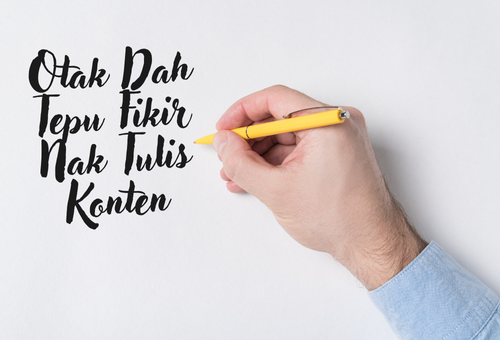 Otak Dah
Tepu Fikir
Nak Tulis
Konten